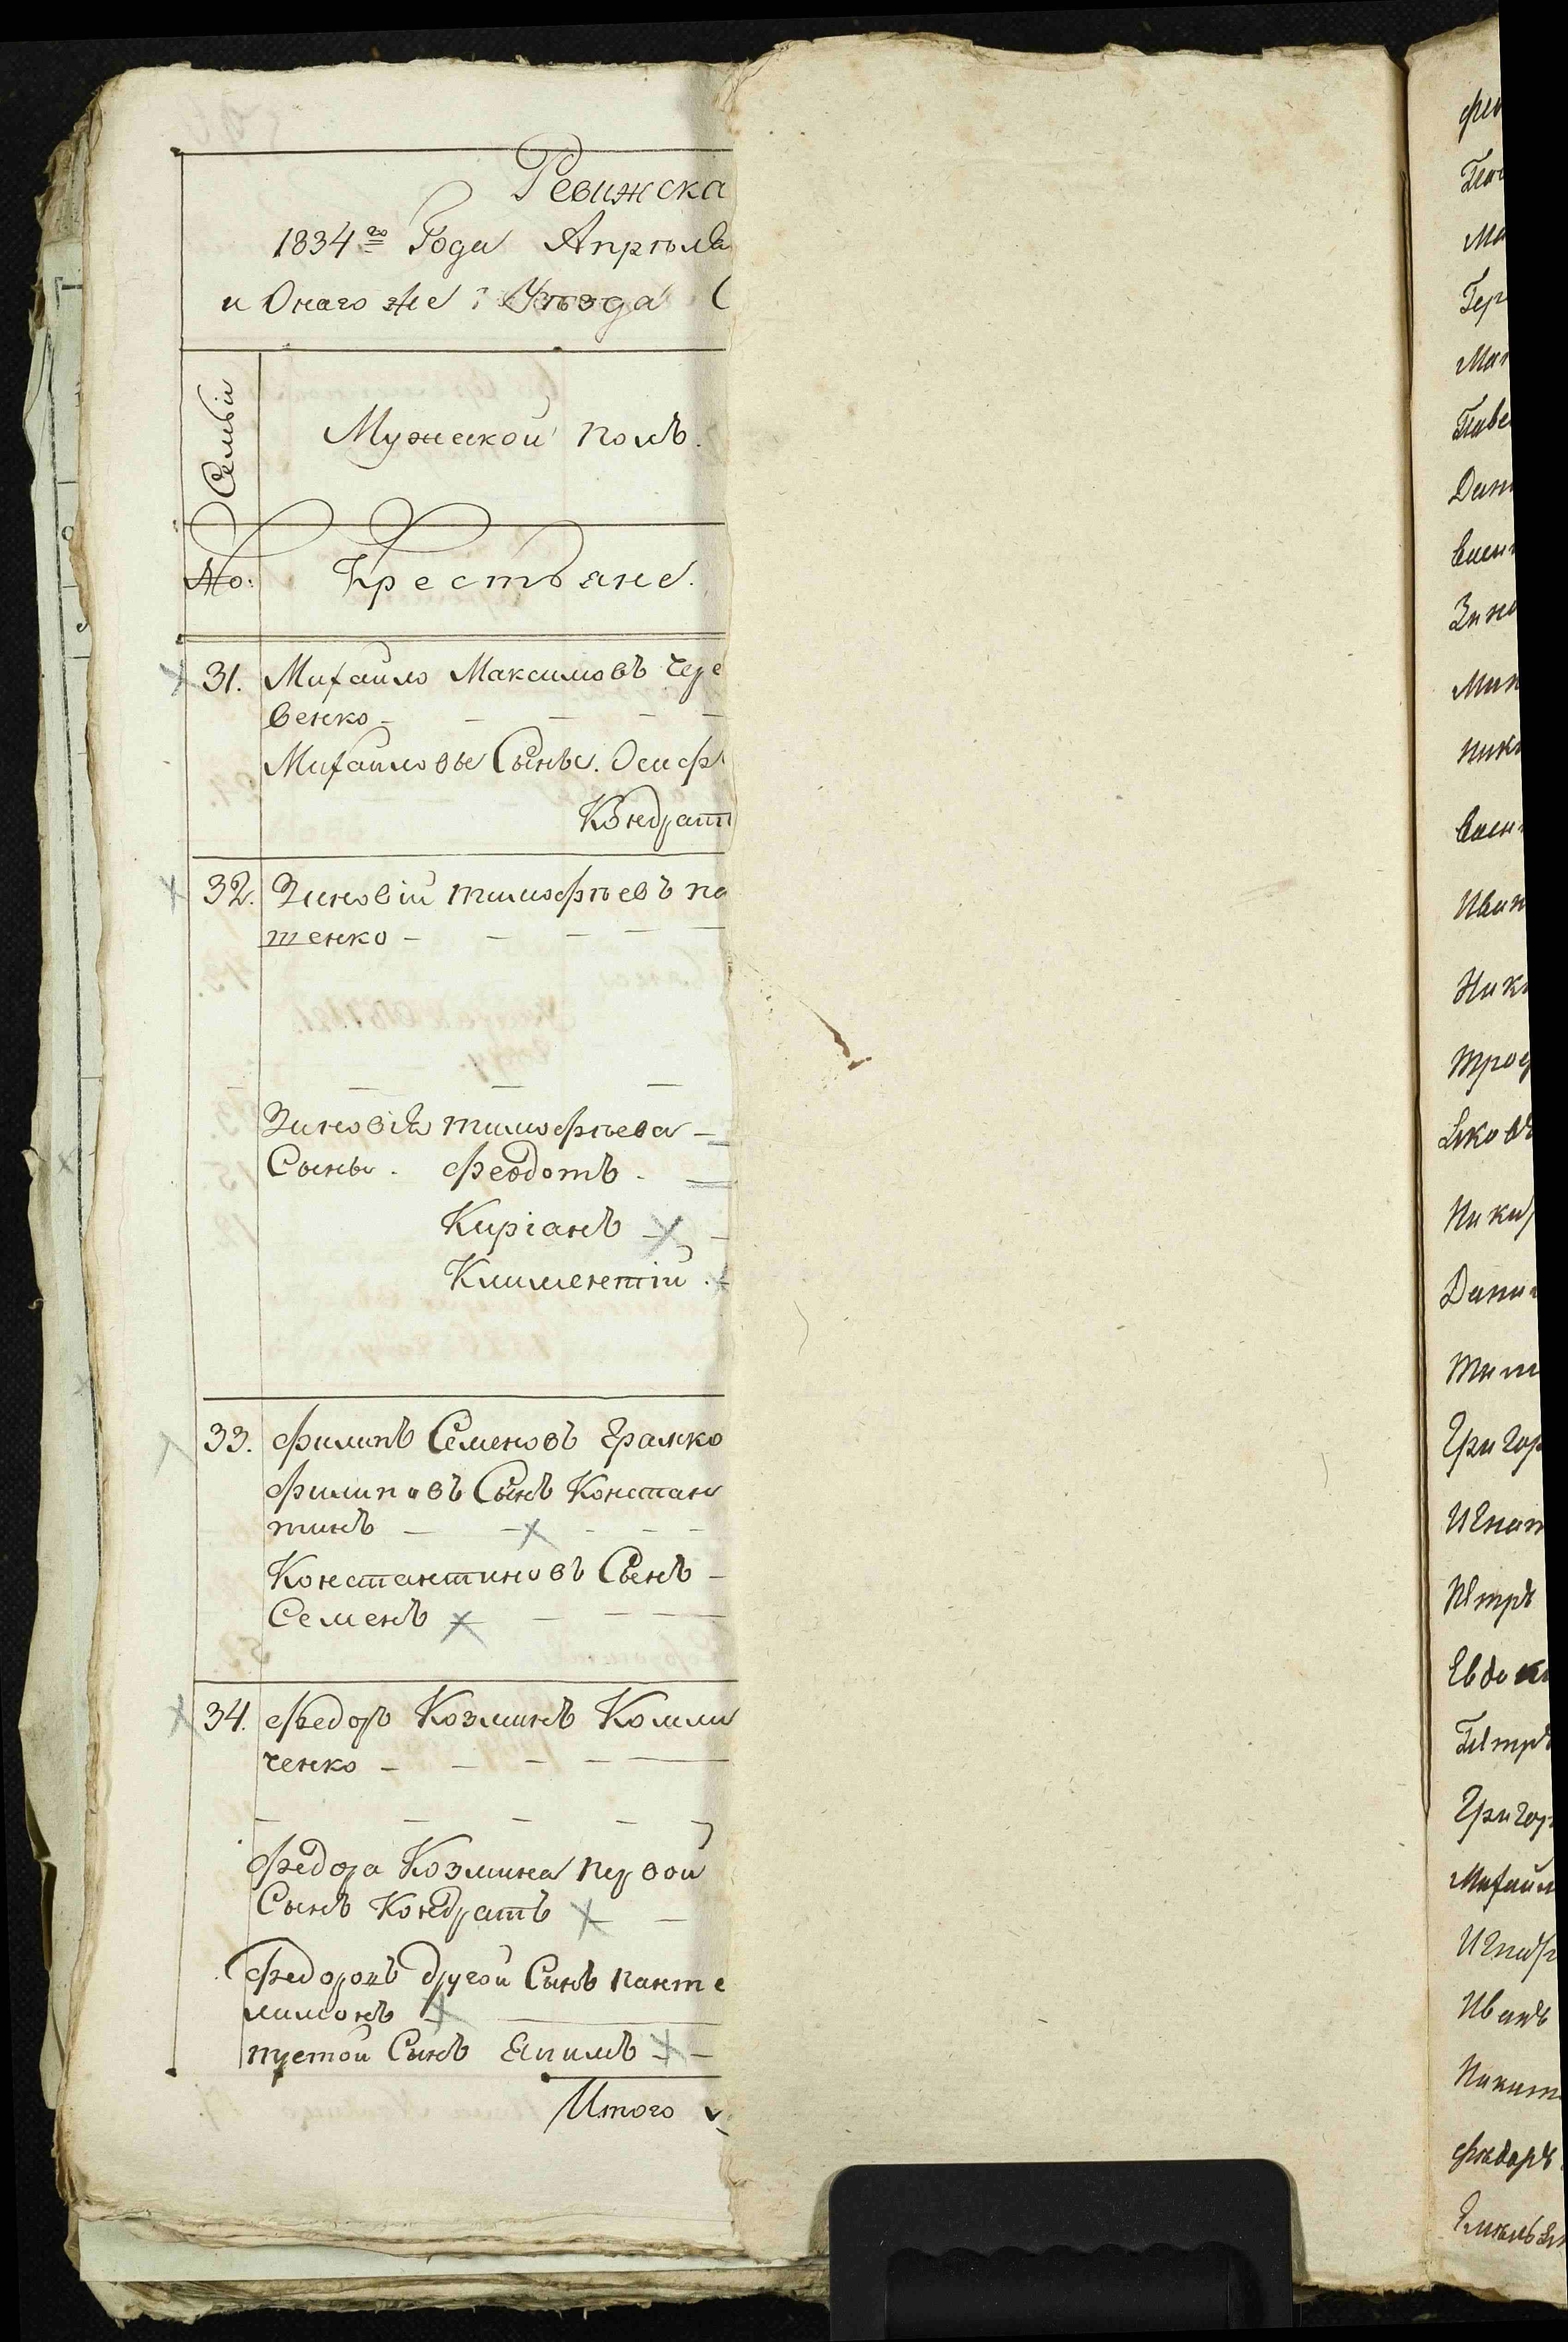 Ревижска
1834го Года Апрѣля
и Онаго же Уѣзда
Семьи
Мужеской полъ.
No:
Крестьяне.
31. Михайло Максимовъ Чере
венко
Михайловы Сыны. Осифъ
Кондрат
32. Зиновій тимофѣевъ па
тенко
Зиновія тимофѣева
Сыны. Феодотъ.
Киріанъ
Климентій.
33. Филипъ Семеновъ Храмко
Филиповъ Сынъ Констан
тинъ
Константиновъ Сынъ
Семенъ
34. Федоръ Козминъ Колми
ченко
Федора Козмина первой
Сынъ Кондратъ
Федоровъ другой Сынъ панте
лимонъ
третой Сынъ Якимъ
Итого
Ма
Гер
Паве
Дани
Васи
Зино
Мих
ники
Васи
Иван
Ники
троф
Яковъ
Ники
Дани
Тим
Григор
Игнат
Петръ
Евдоки
Петръ
Григор
Михайл
Игнат
Иванъ
Никит
Федоръ
Емельян